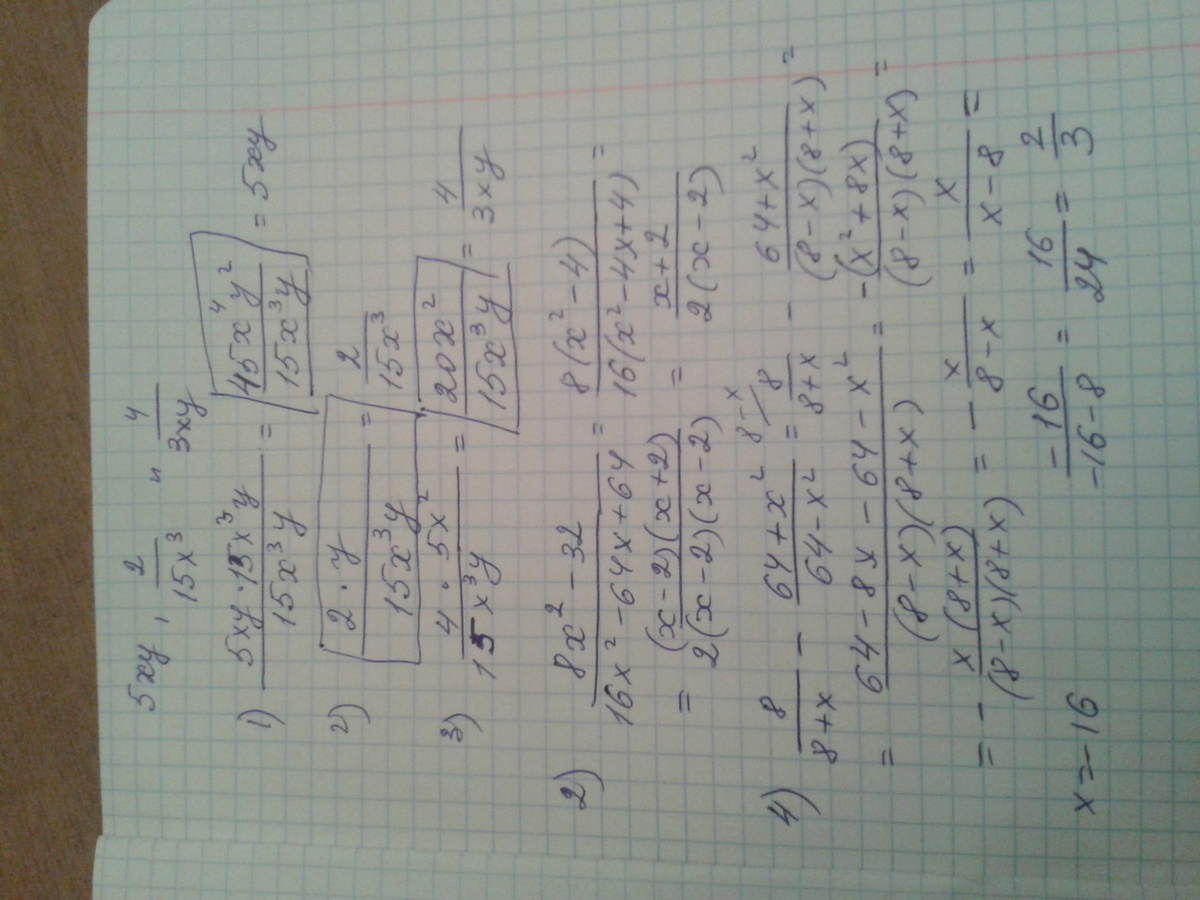 5xy, 2/15x³ и 4/3xy
1) 5xy·15x³y/15x³y = 45x⁴y²/15x³y = 5xy
2) 2·y/15x³y = 2/15x³
3) 4·5x²/15x³y = 20x²/15x³y = 4/3xy
2) 8x²-32/16x²-64x+64 = 8(x²-4)/16(x²-4x+4) =
= (x-2)(x+2)/2(x-2)(x-2) = x+2/2(x-2)
4) 8/8+x - 64+x²/64-x² = 8-x/ 8/8+x - 64+x²/(8-x)(8+x) =
= 64-8x-64-x²/(8-x)(8+x) = -(x²+8x)/(8-x)(8+x) =
= - x(8+x)/(8-x)(8+x) = - x/8-x = x/x-8 =
x=-16 -16/-16-8 = 16/24 = 2/3